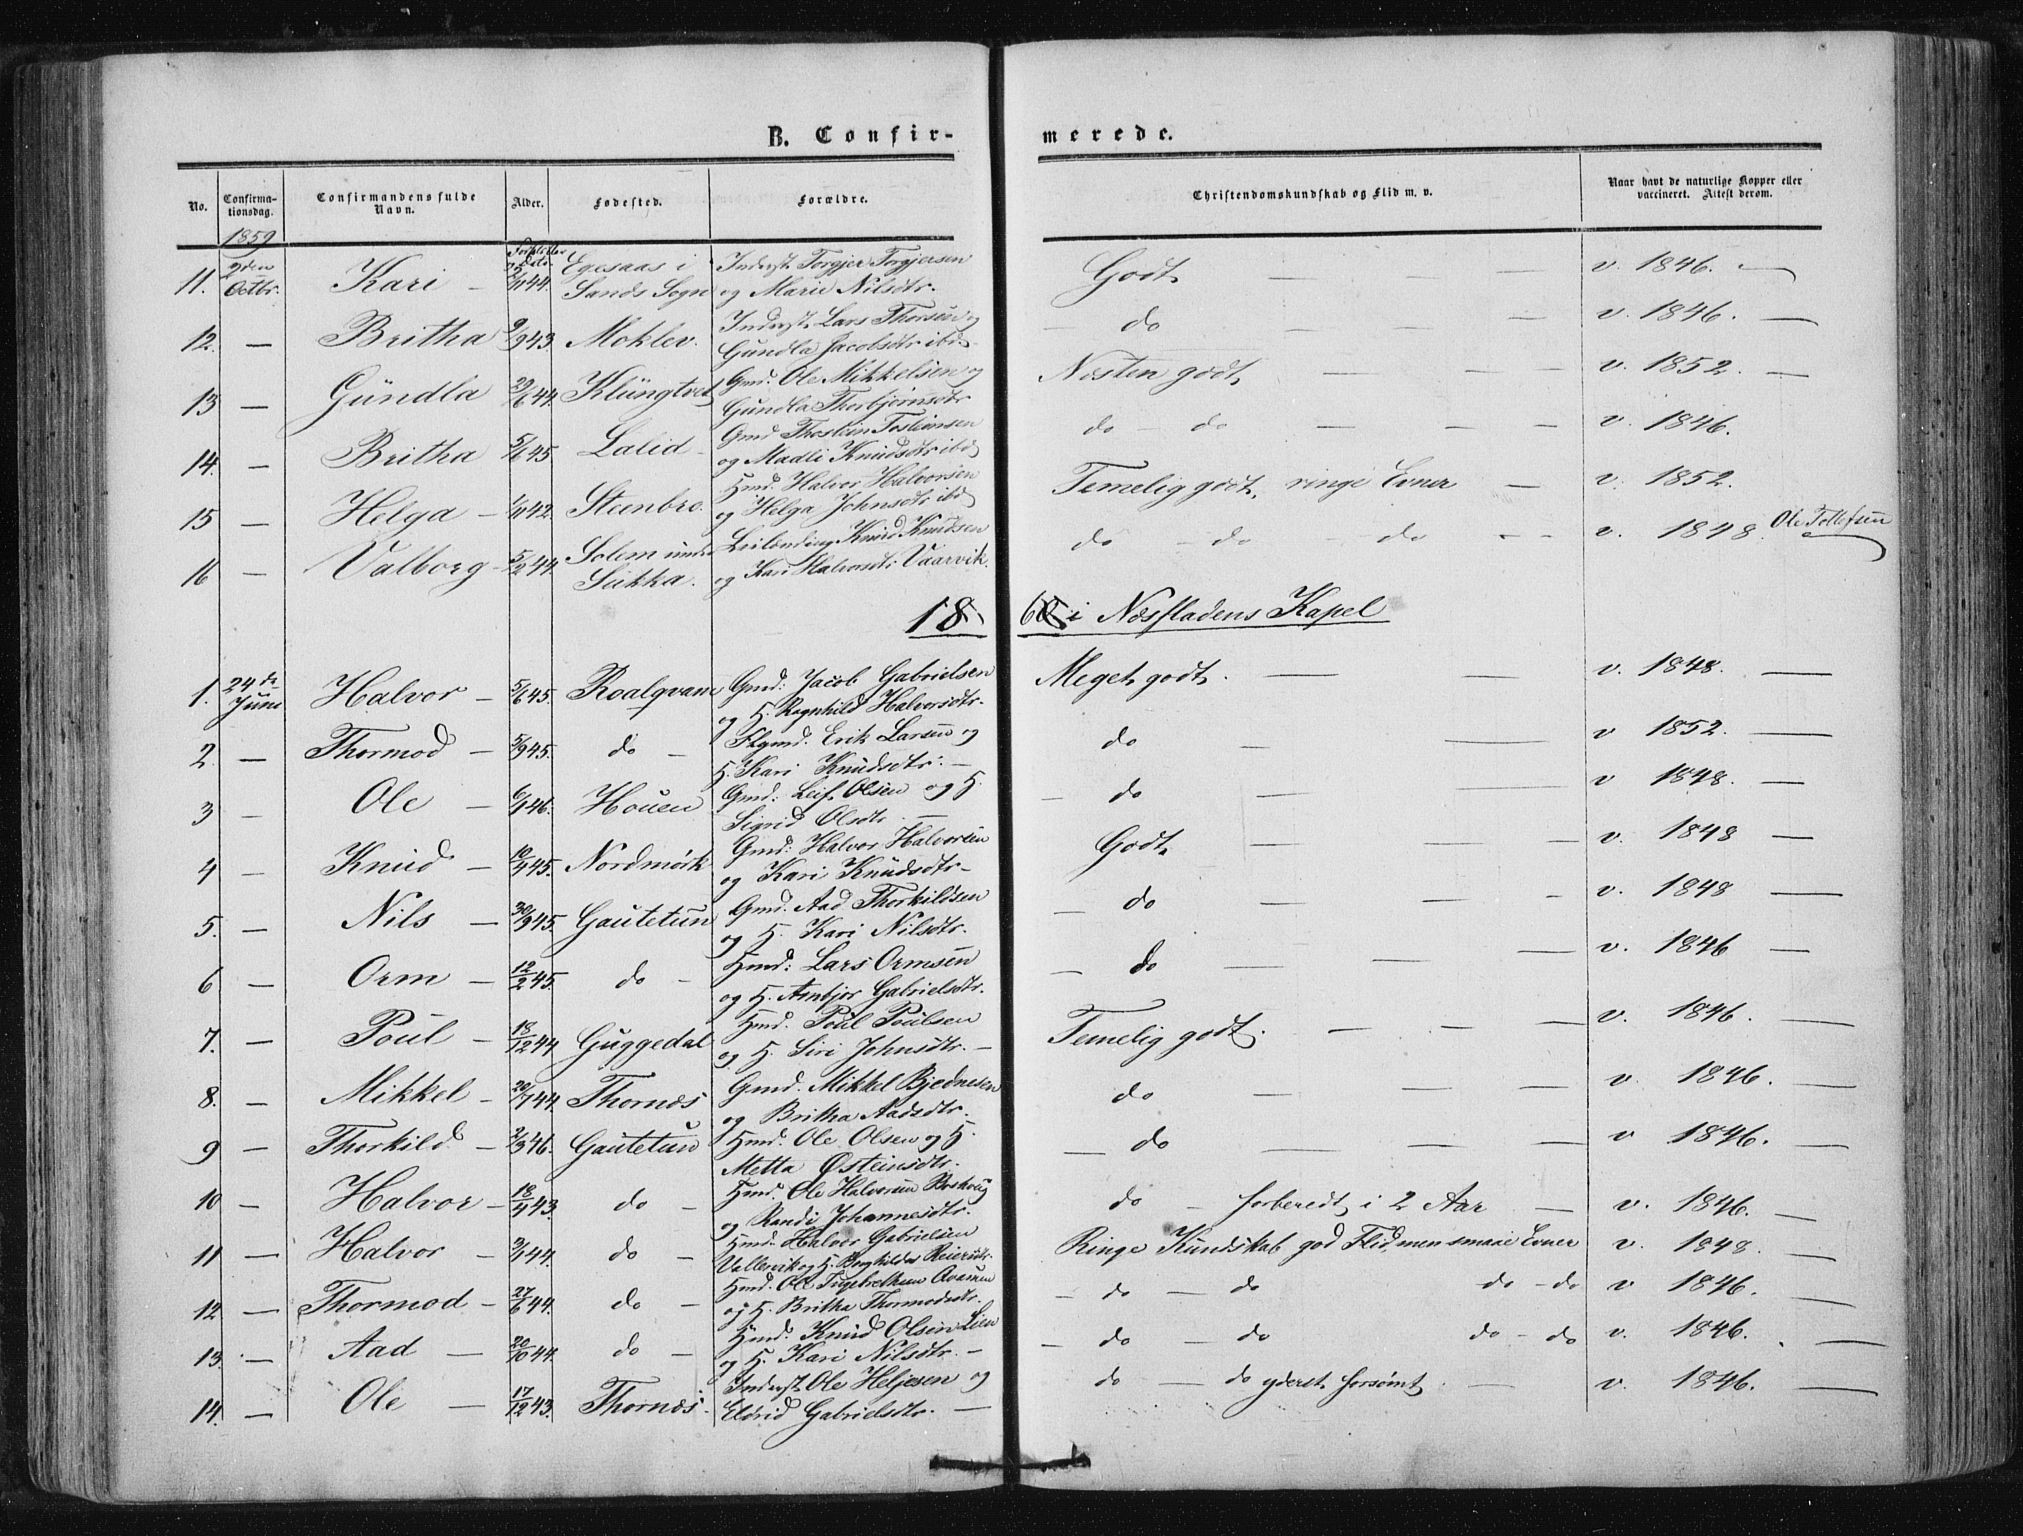 B. Confir-
merede.
No.
Confirma-
tionsdag.
Confirmandens fulde
Navn.
Alder.
Fødested.
Forældre.
Christendomskundskab og Flid m. v.
Naar havt de naturlige Kopper eller
vaccineret. Attest derom.
1859
11. 9den Octbr. Kari — 44. Egesaas i Sands Sogn Inderst. Torgjer Torgjersen og Marie Nilsdtr. Godt — — — v. 1846. —
12. — Britha 9/9 43. Moklev. Inderst. Lars Thorsen og Gundla Jacobsdtr ibd. — do — — — v. 1846. —
13 — Gundla 29/6 44. Klungtvet Gmd. Ole Mikkelsen og Gundla Thorbjørnsdtr Næsten godt — — — v. 1852. —
14. — Britha 5/6 45. Lalid — Gmd Thostein Tosteinsen og Madli Knudsdtr ibd do — do — — — v. 1846.
15 — Helga — 1/11 42. Steenbro. Hmd. Halvor Halvorsen og Helga Johnsdtr ibd Temelig godt, ringe Evner — v. 1852.
16 — Valborg — 5/2 44. Solem under Sukka. Leilending Knud Knudsen og Kari Halvorsdtr Vaarvik. do — do — do — — v. 1848. Ole Tollefsen
1860 i Næsfladens Kapel
1. 24de Juni Halvor — 5/6 45. Roalqvam Gmd: Jacob Gabrielsen og H. Ragnhild Halvorsdtr. Meget godt. — — v. 1848. —
2. — Thormod — 5/9 45. do — Erik Larsen og H. Kari Knudsdtr: — do — — v 1852. —
3 — Ole — 6/1 46. Houen Gmd: Leif Olsen og H. Sigrid Olsdtr. — — do — — v 1848. —
4 — Knud — 10/4 45. Nordmørk Gmd: Halvor Halvorsen og Kari Knudsdtr — Godt — — v. 1848 —
5. — Nils — 30/9 45. Gautetun Gmd. Aad Thorkildsen og H. Kari Nilsdtr. — do — — — v. 1848 —
6 — Orm — 12/2 45. do — Hmd: Lars Ormsen og H. Anbjor Gabrielsdtr. — do — — — v. 1846 —
7. — Poul — 18/12 44 Guggedal Hmd. Poul Poulsen og H. Siri Johnsdtr. — Temelig godt. — — — v. 1846. —
8. — Mikkel — 20/7 44. Thornæs Gmd. Mikkel Bjednesen og Britha Aadsdtr. do — — v 1846. —
9 — Thorkild — 2/3 46. Gautetun Hmd. Ole Olsen og H. Metta Østeinsdtr. — do — — — v 1846. —
10 — Halvor — 18/4 43. do — Hmd. Ole Halvorsen og Randi Johannesdtr. do — forberedt i 2 Aar — v. 1846. —
11 — Halvor — 44. do — Hmd. Halvor Gabrielsen Vallevik og H. Borghilda Reiersdtr. Ringe Kundskab god Flid men smaae Evner v. 1848. —
12 — Thormod — 27/6 44. do — Hmd. Ole og H. Britha Thormodsdtr. — do — do do — do v 1846. —
13. — Aad — 20/10 44. do — Hmd. Knud Olsen Lien og H. Kari Nilsdtr. — — do — do do — do v. 1846. —
14. — Ole — 17/12 43. Thornæs. Inderst. Ole Heljesen og Eldrid Gabrielsdtr. — do — do yderst forsømt. — v. 1846. —